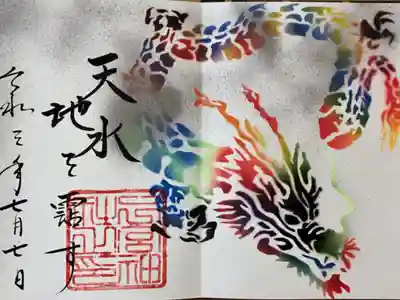 天水
地を霑す
令和三年七月七日